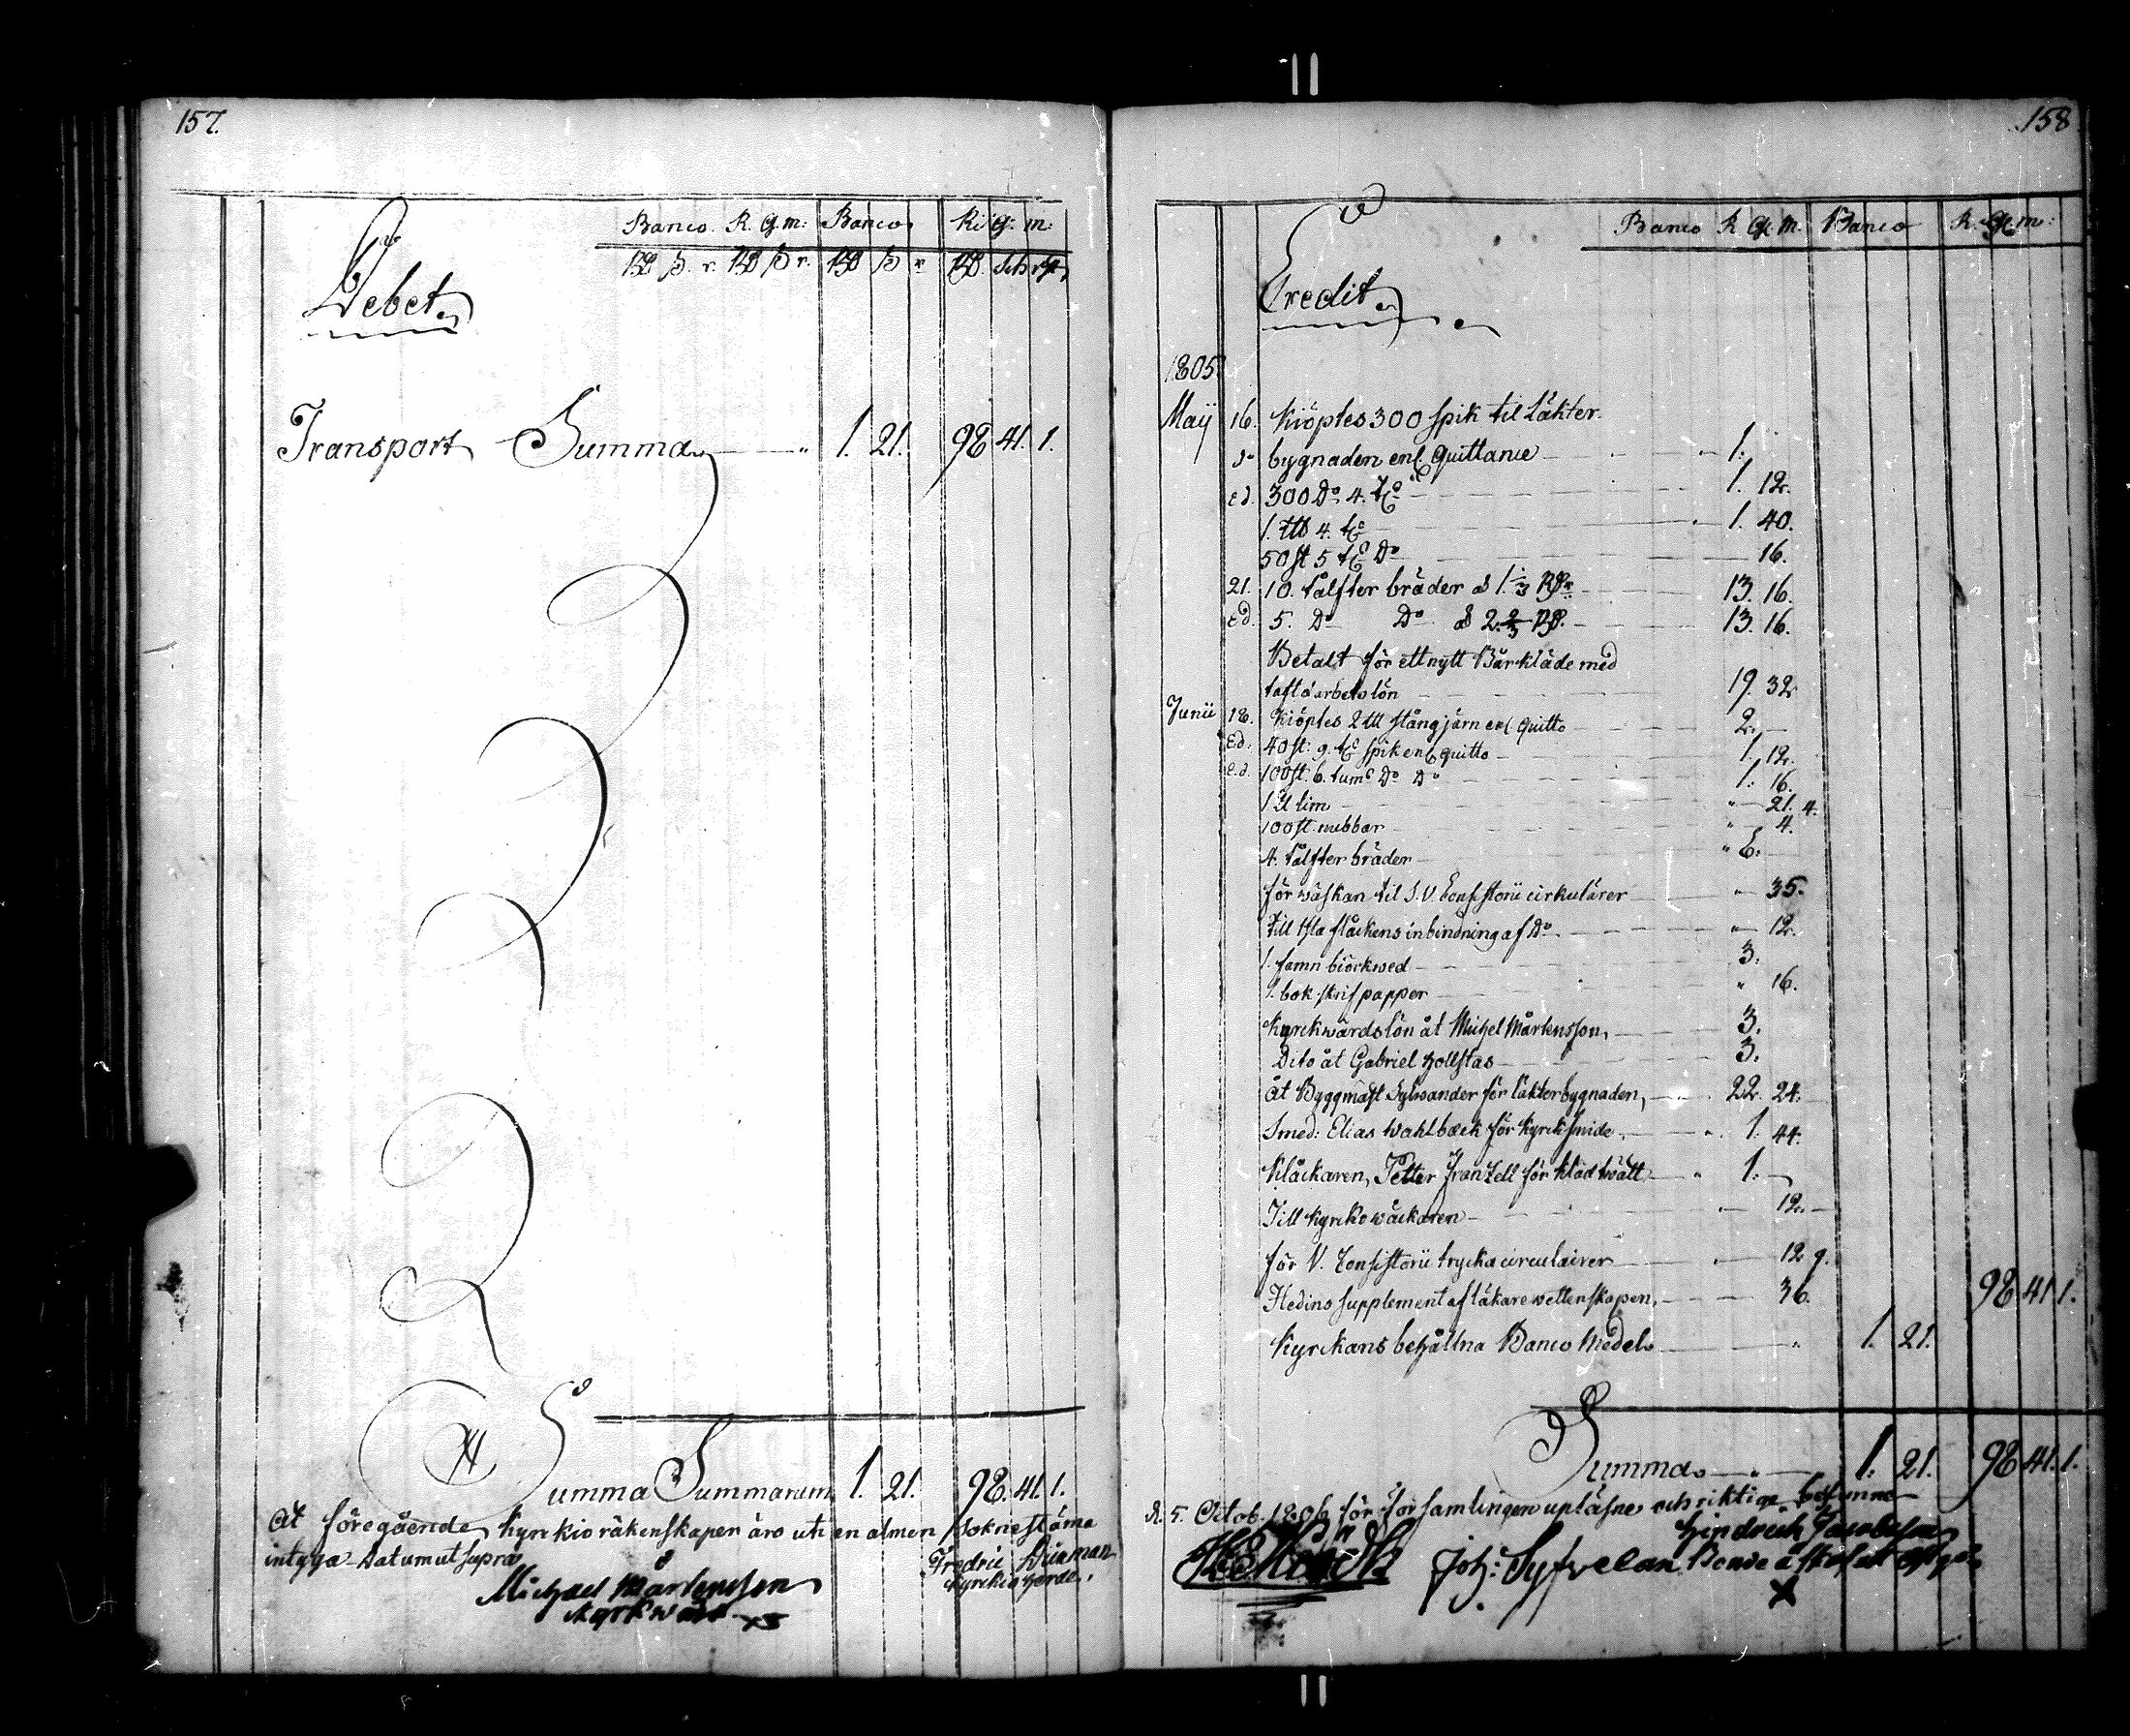 157.
Banco. R. G. m: Banco R: G: m:
Debet.
Transport Summa 1. 21. 98 41. 1.
Summa Summarum 1. 21. 98. 41. 1.
At föregående Kyrckioräkenskaper äro uti en almen Soknestäma
intyga Datum ut supra
Michael Mårtensson
Kyrkwärd
Fredric
Kyrckio
158
Banco R G. M. Banco R. G. m:
Credit.
1805.
Maij 16. Kiöptes 300 spik til Läkter
do bygnaden enl. Quittance 1.
ed. 300 Do 4. 1. 12.
1. 4. 1. 40.
50 st 5 Do 16.
21. 10. tålfter bräder a 1 1/3 Rdr 13. 16.
ed. 5. Do Do a 2. 2/3 Rd. 13. 16.
Betalt för ett nytt Bårkläde med
taft o arbetslön 19. 32
Junii 18. Kiöptes 2 stångjärn enl Quitto 2.
Ed. 40 st: 9. spik enl quitto 1. 12.
e.d. 100 st. 6. tums Do Do 1. 16.
1 lim 21. 4.
100 st. nubbar 4.
4. tålfter bräder 6.
för wäskan til S. V. Consistorii cirkulärer 35.
Till inbindning af Do 12.
1. famn biörkwed 3.
1. bok skrifpapper 16.
Kyrckwärdslön åt Michel Mårtensson, 3.
Dito åt Gabriel Hollstas 3.
åt Byggmäst Sylvander för läkterbygnaden, 22. 24.
Smed: Elias Wahlbeck för Kyrcksmide 1. 44.
Klåckaren, Petter Franzell för klädtwätt 1.
Till Kyrckowäckaren 12.
för V. Consistorii tryckta circulairer 12 9.
Hedins supplement af läkarewettenskapen, 36. 98 41 1.
Kyrckans behållna Banco Medel 1. 21.
Summa 1. 21. 98 41. 1.
d. 5. Octob. 1806 för församlingen upläsne och riktige befunne
Hindrich Jacobsson
Joh: Bonde